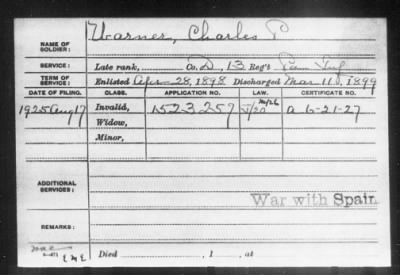 NAME OF SOLDIER: Warner, Charles P.
SERVICE: Late rank, Co. D, 13 Reg't Pa. Inf.
TERM OF SERVICE: Enlisted Apr. 28, 1898 Discharged Mar. 11, 1899
DATE OF FILING. CLASS. APPLICATION NO. LAW. CERTIFICATE NO.
1925 Aug 17 Invalid, 1523257 a 6-21-27
Widow,
Minor,
ADDITIONAL SERVICES:
War with Spain.
REMARKS:
Died , 1 , at